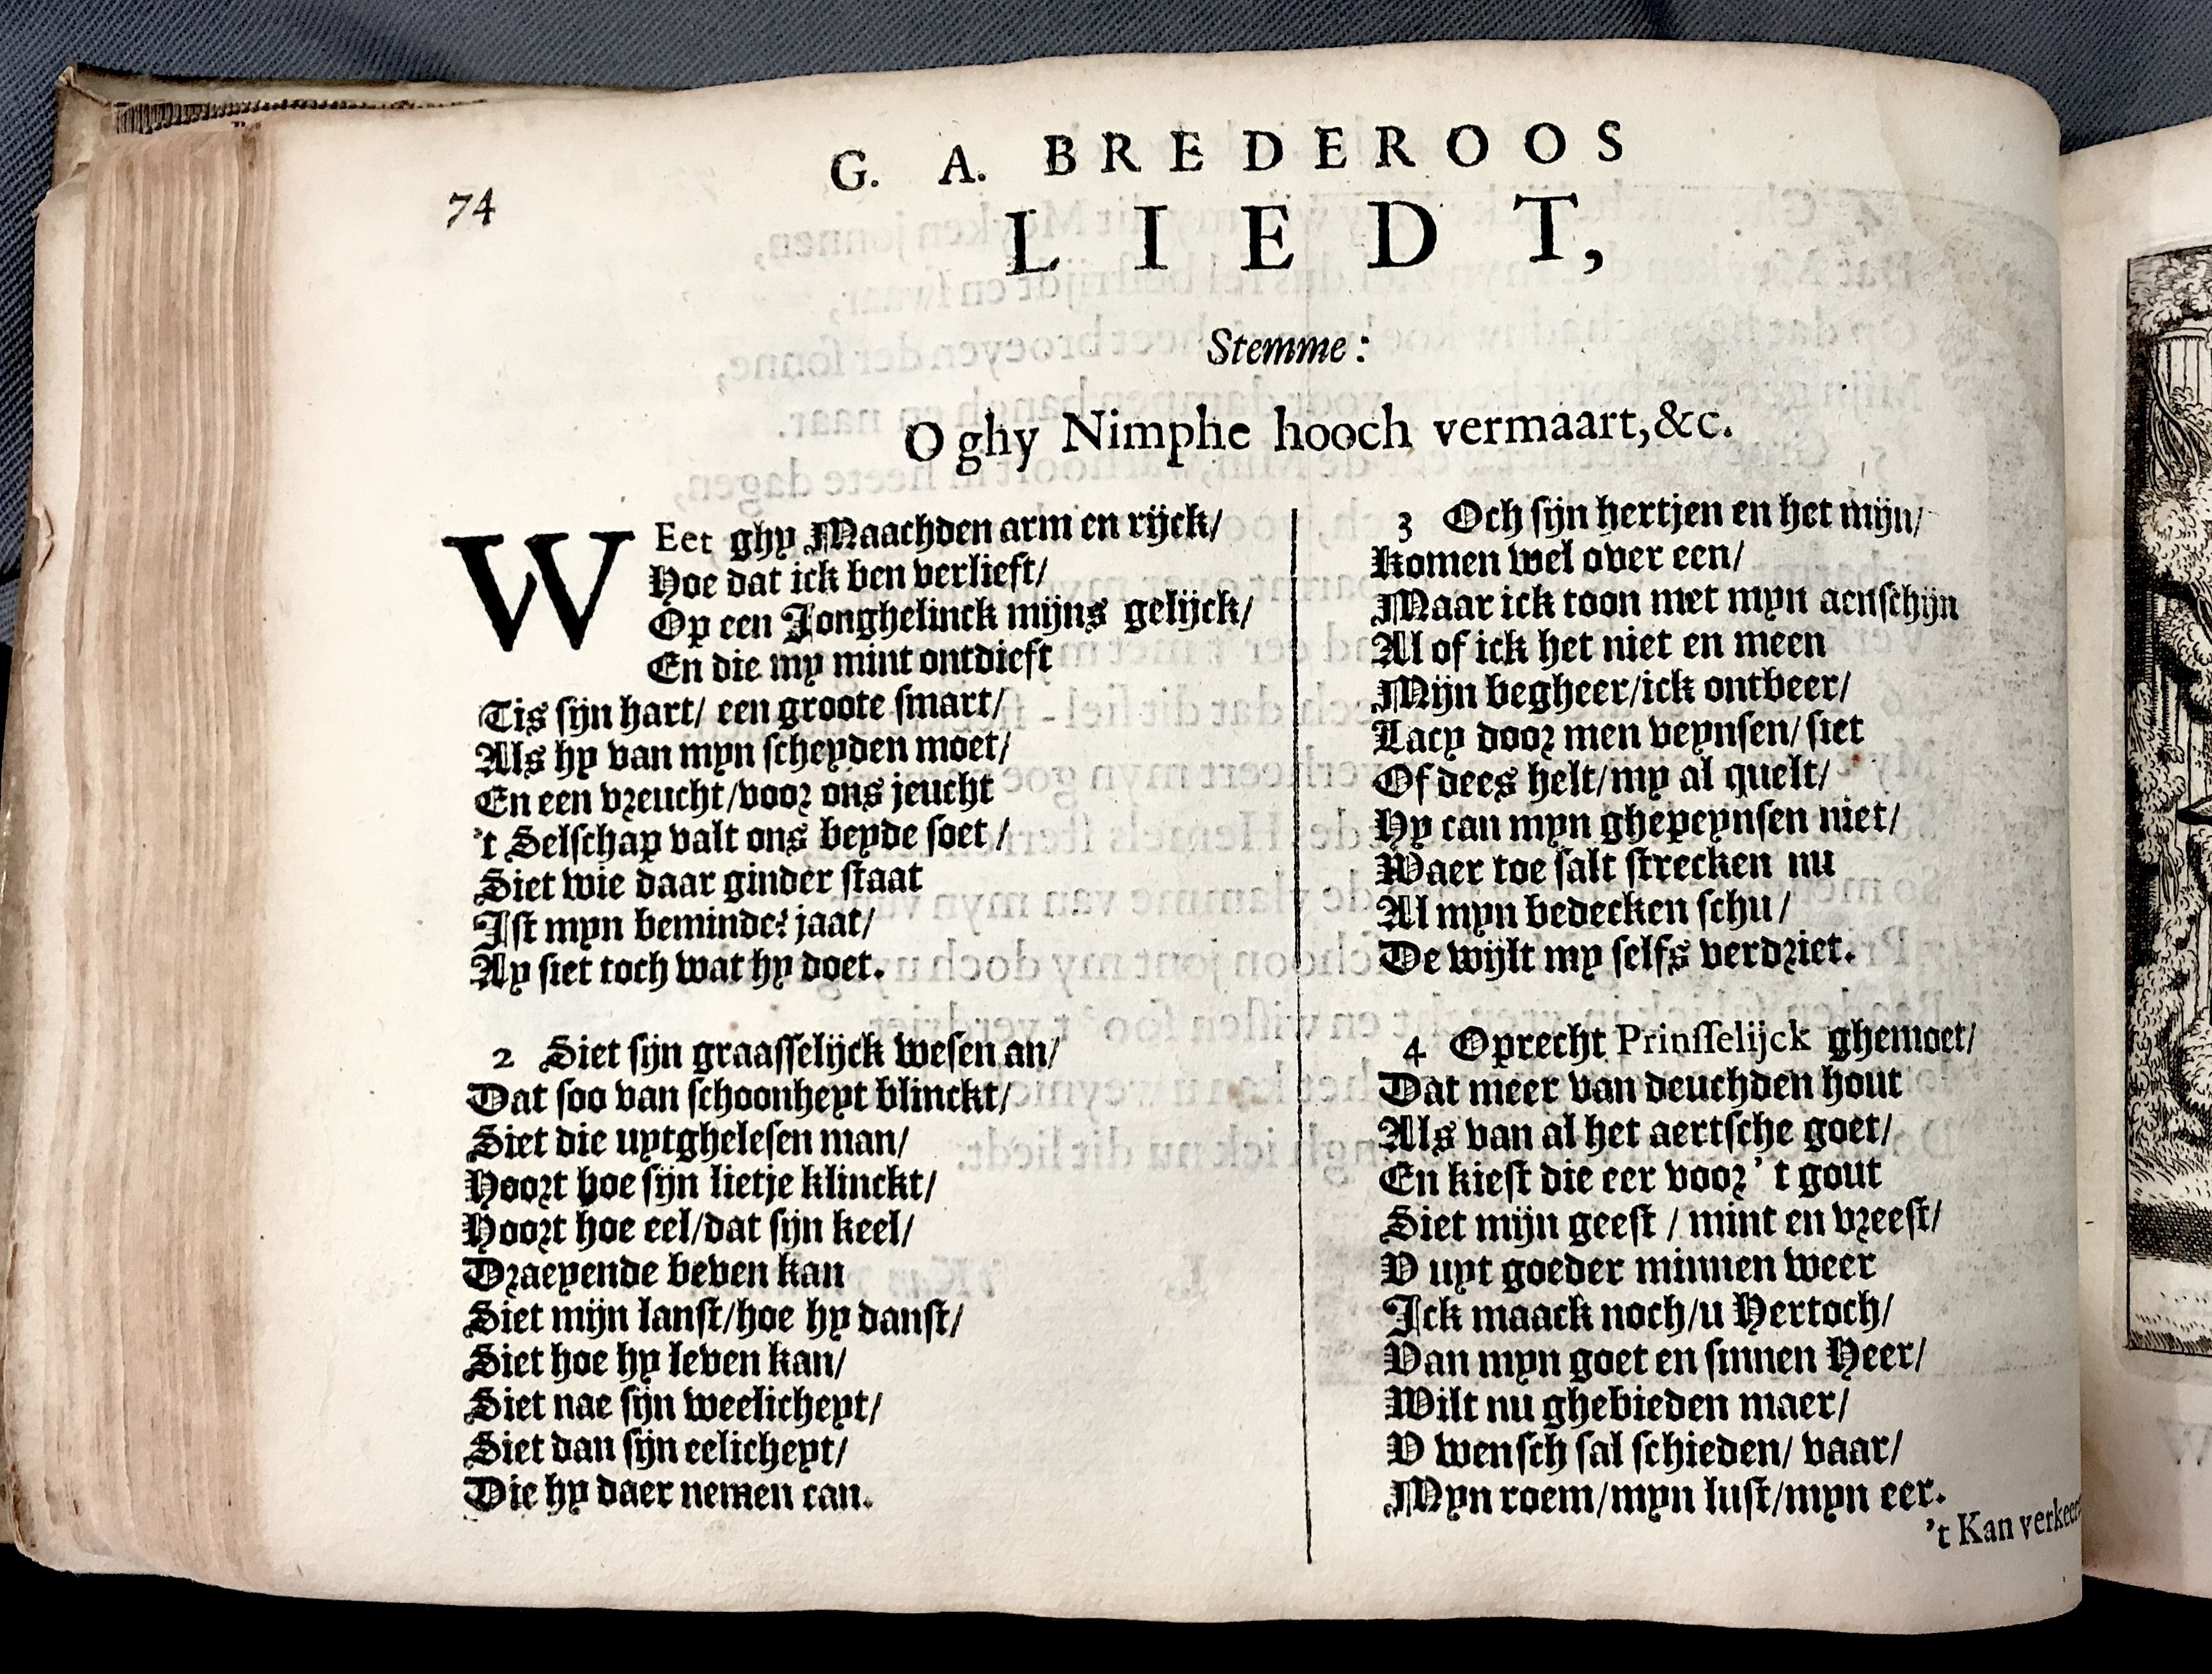 74
G. A. BREDEROOS
LIEDT,
Stemme:
O ghy Nimphe hooch vermaart, &c.
WEet ghy Maachden arm en rijck/
Hoe dat ick ben verlieft/
Op een Jonghelinck mijns gelijck/
En die my mint ontdieft
Tis sijn hart/ een groote smart/
Als hy van myn scheyden moet/
En een vreucht/voor ons jeucht
't Selschap valt ons beyde soet /
Siet wie daar ginder staat
Ist myn beminde? jaat/
Ay siet toch wat hy doet.
2 Siet sijn graasselijck wesen an/
Dat soo van schoonheyt blinckt/
Siet die uytghelesen man/
Hoort hoe sijn lietje klinckt/
Hoort hoe eel/dat sijn keel/
Draeyende beven kan
Siet mijn lanst/hoe hy danst/
Siet hoe hy leven kan/
Siet nae sijn weelicheyt/
Siet dan sijn eelicheyt/
Die hy daer nemen can.
3 Och sijn hertjen en het mijn/
Komen wel over een/
Maar ick toon met myn aenschijn
Al of ick het niet en meen
Mijn begheer/ick ontbeer/
Lacy door men veynsen/ siet
Of dees helt/my al quelt/
Hy can myn ghepeynsen niet/
Waer toe salt strecken nu
Al myn bedecken schu/
De wijlt my selfs verdriet.
4 Oprecht Prinsselijck ghemoet/
Dat meer van deuchden hout
Als van al het aertsche goet/
En kiest die eer voor 't gout
Siet mijn geest / mint en vreest/
V uyt goeder minnen weer
Ick maack noch/u Hertoch/
Van myn goet en sinnen Heer/
Wilt nu ghebieden maer/
V wensch sal schieden/ vaar/
Myn roem/myn lust/myn eer.
't Kan verkeer